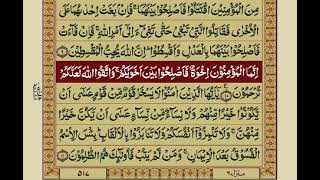 مِنَ الْمُؤْمِنِيْنَ اقْتَتَلُوْا فَاَصْلِحُوْا بَيْنَهُمَا ۚ فَاِنْۢ بَغَتْ اِحْدٰىهُمَا عَلَى
الْاُخْرٰى فَقَاتِلُوا الَّتِيْ تَبْغِيْ حَتّٰى تَفِيْٓءَ اِلٰٓى اَمْرِ اللّٰهِ ۚ فَاِنْ فَآءَتْ
فَاَصْلِحُوْا بَيْنَهُمَا بِالْعَدْلِ وَاَقْسِطُوْا ؕ اِنَّ اللّٰهَ يُحِبُّ الْمُقْسِطِيْنَ ۹
اِنَّمَا الْمُؤْمِنُوْنَ اِخْوَةٌ فَاَصْلِحُوْا بَيْنَ اَخَوَيْكُمْ ۚ وَاتَّقُوا اللّٰهَ لَعَلَّكُمْ
تُرْحَمُوْنَ ۱۰ يٰٓاَيُّهَا الَّذِيْنَ اٰمَنُوْا لَا يَسْخَرْ قَوْمٌ مِّنْ قَوْمٍ عَسٰٓى اَنْ
يَّكُوْنُوْا خَيْرًا مِّنْهُمْ وَلَا نِسَآءٌ مِّنْ نِّسَآءٍ عَسٰٓى اَنْ يَّكُنَّ خَيْرًا
مِّنْهُنَّ ۚ وَلَا تَلْمِزُوْٓا اَنْفُسَكُمْ وَلَا تَنَابَزُوْا بِالْاَلْقَابِ ؕ بِئْسَ الِاسْمُ
الْفُسُوْقُ بَعْدَ الْاِيْمَانِ ۚ وَمَنْ لَّمْ يَتُبْ فَاُولٰٓئِكَ هُمُ الظّٰلِمُوْنَ ۱۱
منزل ۶ ۵۱۷